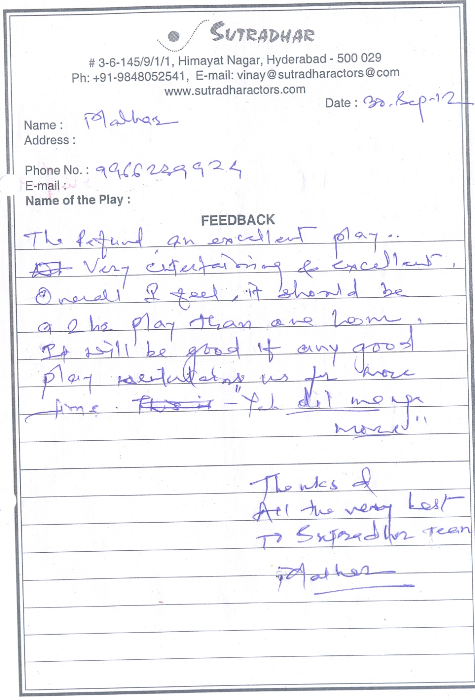 SUTRADHAR
# 3-6-145/9/1/1, Himayat Nagar, Hyderabad - 500 029
Ph: +91-9848052541, E-mail: vinay@sutradharactors@com
www.sutradharactors.com
Date : 30. Sep-12
Name :
Address :
Phone No. :
E-mail :
Name of the Play :
FEEDBACK
The Refund, an excellent play..
Very entertaining & excellent.
Overall I feel, it should be
a 2 hr play than one hour.
It will be good if any good
play us for more
time. This is "Yeh dil mange
more"
Thanks &
All the very best
To Sutradhar Team